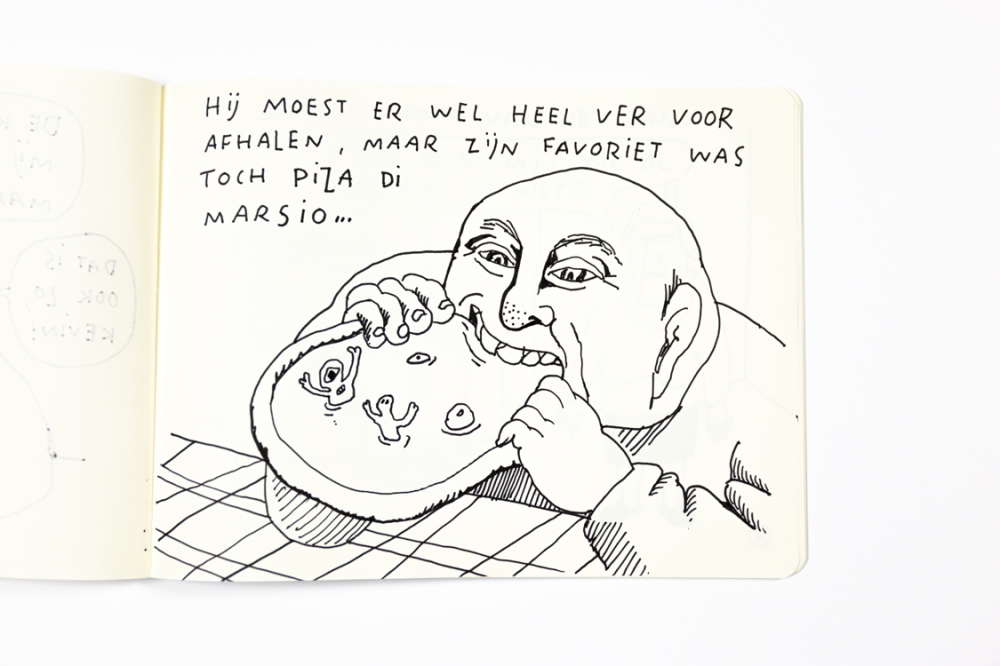 HIJ MOEST ER WEL HEEL VER VOOR
AFHALEN, MAAR ZIJN FAVORIET WAS
TOCH PIZA DI
MARSIO...
DE
MIJ
DAT IS
OOK ZO,
KEVIN!